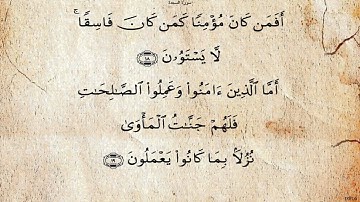 أَفَمَن كَانَ مُؤْمِنًا كَمَن كَانَ فَاسِقًا ۚ
لَّا يَسْتَوُۥنَ ﴿١٨﴾
أَمَّا ٱلَّذِينَ ءَامَنُوا۟ وَعَمِلُوا۟ ٱلصَّـٰلِحَـٰتِ
فَلَهُمْ جَنَّـٰتُ ٱلْمَأْوَىٰ
نُزُلًۢا بِمَا كَانُوا۟ يَعْمَلُونَ ﴿١٩﴾